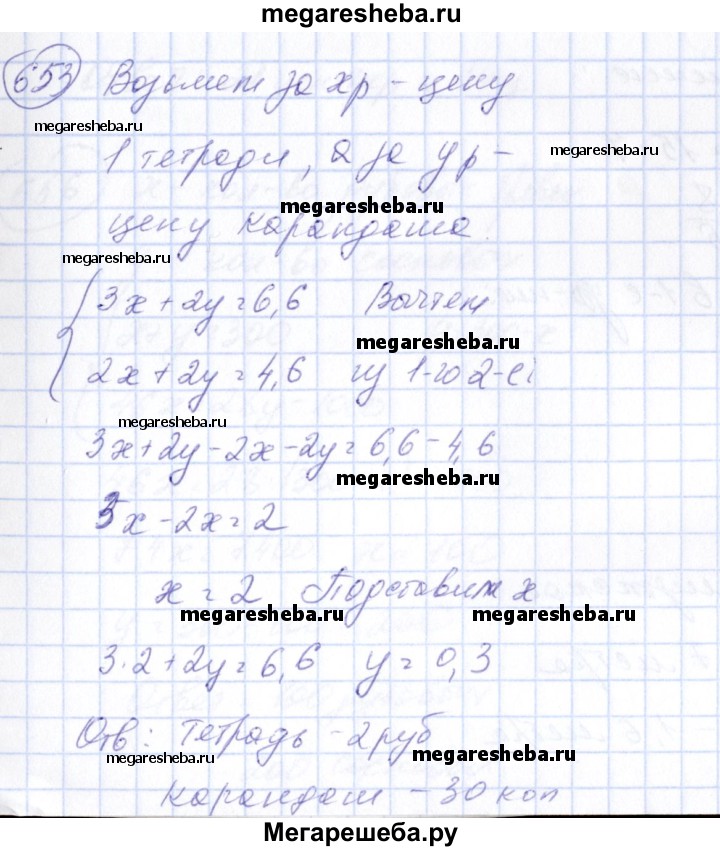 megaresheba.ru
653 Возьмем за xр - цену
megaresheba.ru
1 тетради, а за yр - megaresheba.ru
megaresheba.ru
цену карандаша.
megaresheba.ru
3x + 2y = 6,6 Вычтем
megaresheba.ru
2x + 2y = 4,6 из 1-го 2-е
megaresheba.ru
3x + 2y - 2x - 2y = 6,6 - 4,6
megaresheba.ru
3x - 2x = 2
x = 2 Подставим x
megaresheba.ru megaresheba.ru
3·2 + 2y = 6,6 y = 0,3
Отв: Тетрадь - 2 руб
megaresheba.ru megaresheba.ru
карандаш - 30 коп
Мегарешеба.ру